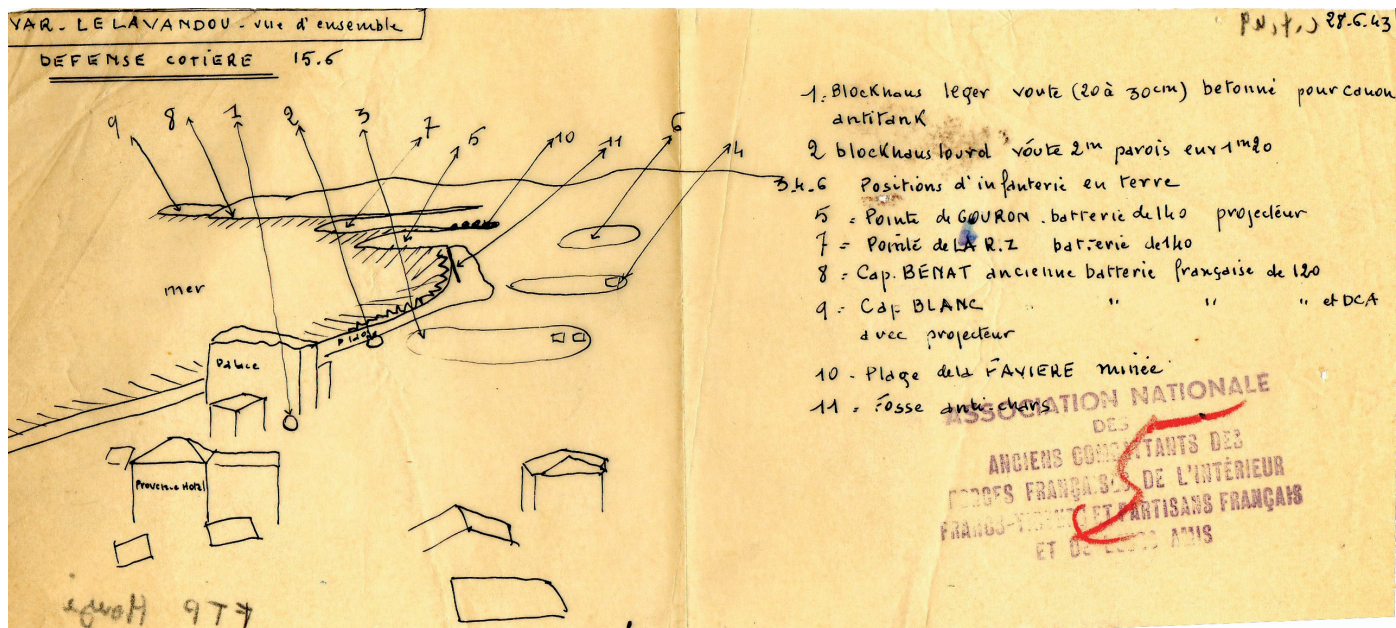 VAR. LE LAVANDOU - vue d'ensemble
DEFENSE COTIERE 15.6
28.6.43
9 8 1 2 3 7 5 10 11 6 4
mer
Palace
Plage
Provence Hotel
1. Blockhaus leger voute (20 à 30cm) betonné pour canon
antitank
2 blockhaus lourd voute 2m parois eur 1m20
3.4.6 Positions d'infanterie en terre
5 = Pointe de GOURON . batterie de 140 projecteur
7 = Pointe de LA R.Z batterie de 140
8 = Cap. BENAT ancienne batterie française de 120
9 = Cap BLANC " " " et DCA
avec projecteur
10 - Plage de la FAVIERE minée
11 = Fosse antichars
ASSOCIATION NATIONALE
DES
ANCIENS COMBATTANTS DES
FORCES FRANÇAISES DE L'INTÉRIEUR
FRANCS-TIREURS ET PARTISANS FRANÇAIS
ET DE LEURS AMIS